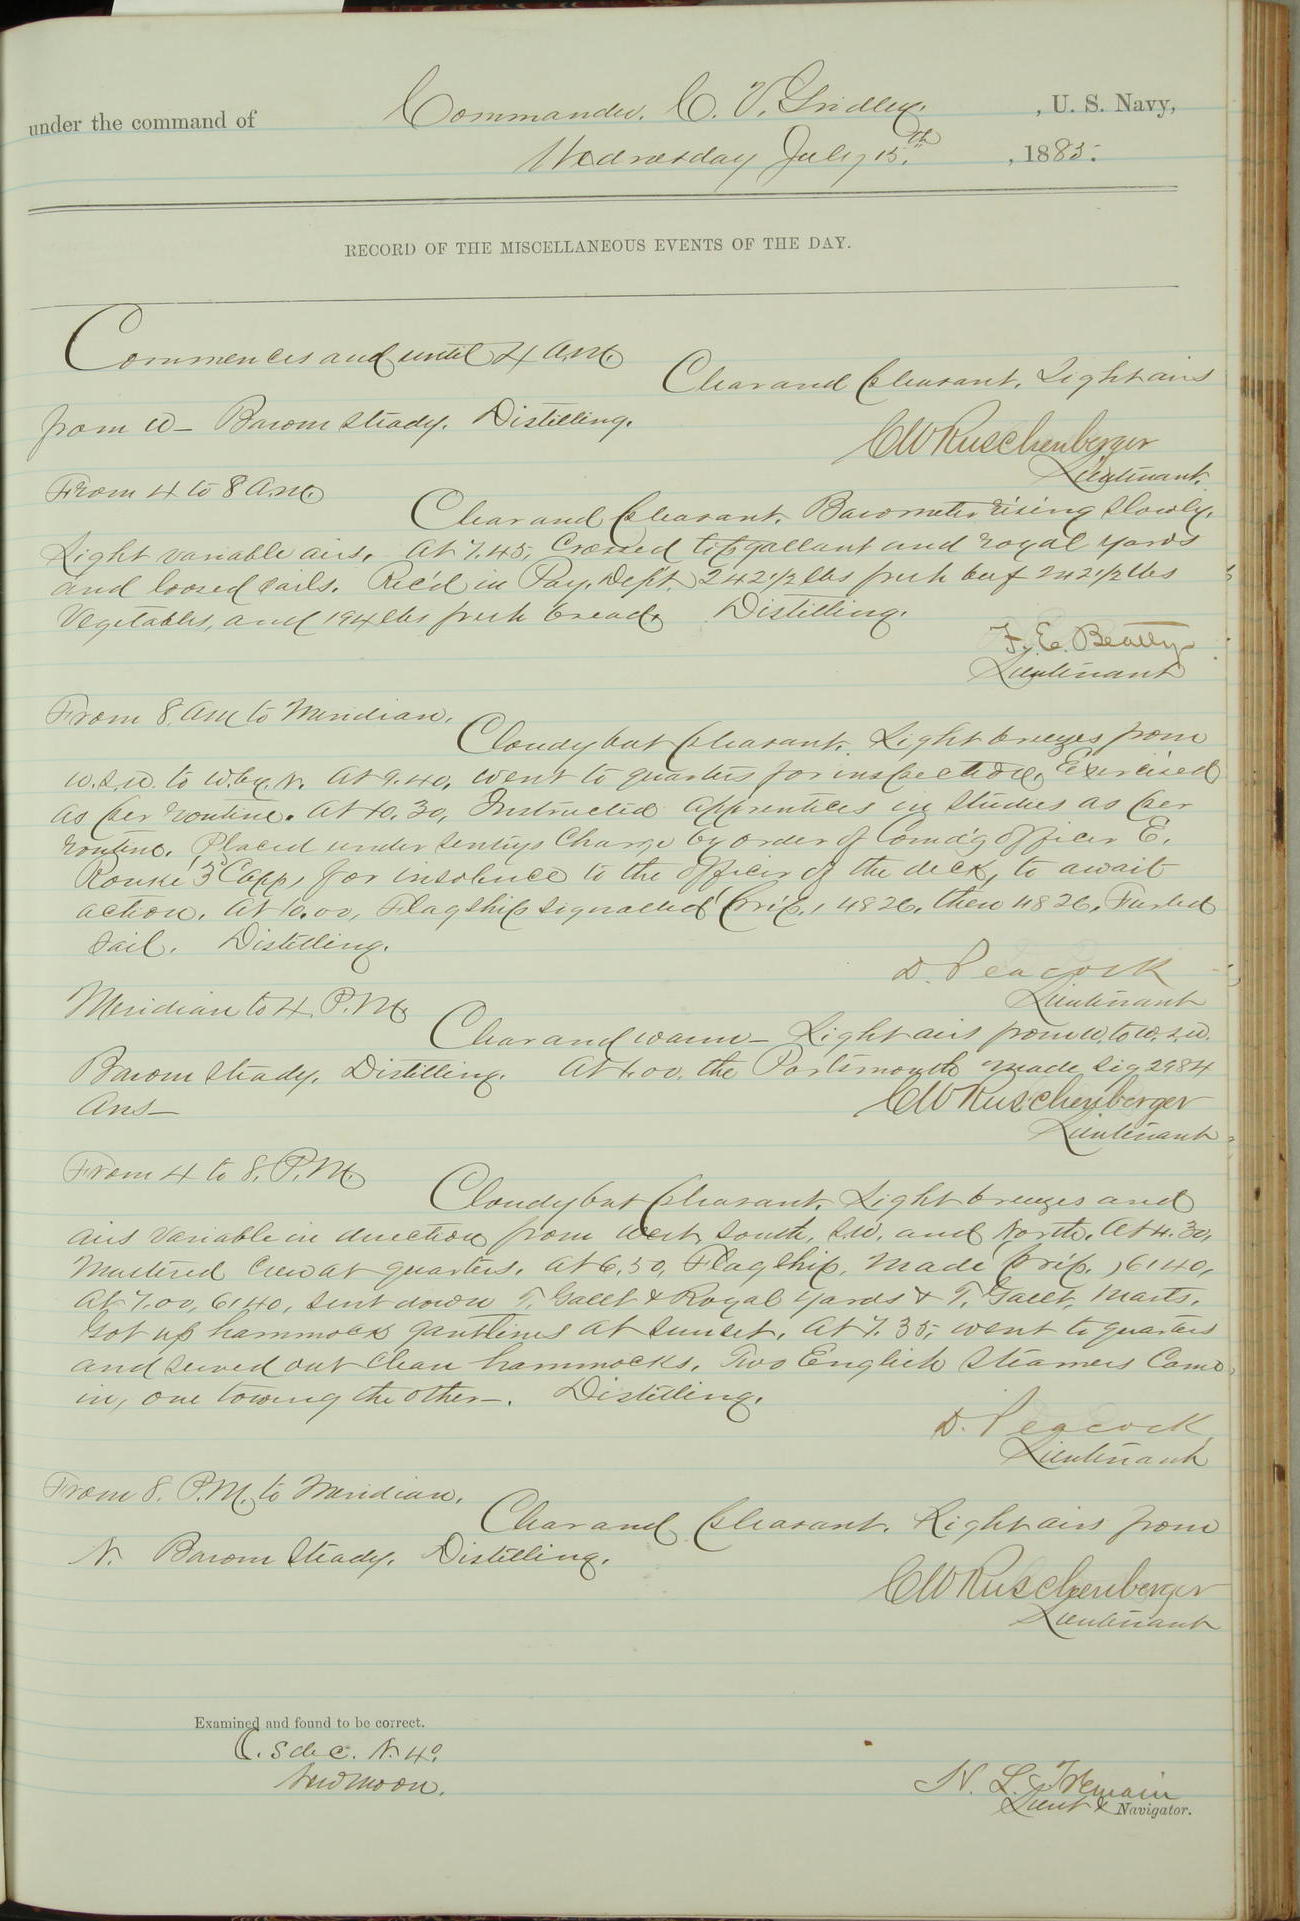 under the command of Commander. C. V. Gridley. , U. S. Navy,
Wednesday July 15.th , 1885.
RECORD OF THE MISCELLANEOUS EVENTS OF THE DAY.
Commences and until 4 A.M.
Clear and pleasant. Light airs
from W— Barom steady. Distilling.
C W Ruschenberger
Lieutenant.
From 4 to 8 A.M.
Clear and pleasant. Barometer rising slowly.
Light variable airs. At 7.45, Crossed topgallant and royal yards
and loosed sails. Rec'd in Pay. Dept. 242 1/2 lbs fresh beef 242 1/2 lbs
Vegetables, and 194 lbs fresh bread. Distilling.
F. E. Beatty
Lieutenant
From 8. AM to Meridian.
Cloudy but pleasant. Light breezes from
W.S.W. to W.by.N. At 9.40, went to quarters for inspection. Exercised
as per routine. At 10.30, Instructed apprentices in studies as per
routine. Placed under sentrys charge by order of Comd'g officer E.
3 C app, for insolence to the officer of the deck, to await
action. At 10.00, Flagship signalled 4826. then 4826. Furled
sail. Distilling.
D. Peacock
Lieutenant
Meridian to 4. P.M.
Clear and warm— Light airs from W. to W.S.W.
Barom steady. Distilling. At 1.00. the Portsmouth made sig 2984
Ans—
C W Ruschenberger
Lieutenant
From 4 to 8. P.M.
Cloudy but pleasant. Light breezes and
airs variable in direction from West, South, S.W. and North. At 4.30,
Mustered crew at quarters. At 6.50, Flagship. Made 6140,
At 7.00, 6140, sent down T. Gallt & Royal yards & T. Gallt. masts.
Got up hammock gantlines at sunset. At 7.35, went to quarters
and served out clean hammocks. Two English steamers came
in, one towing the other—. Distilling.
D. Peacock
Lieutenant
From 8. P.M. to Meridian.
Clear and pleasant. Light airs from
N. Barom steady. Distilling.
C W Ruschenberger
Lieutenant
Examined and found to be correct.
N. 4°
New moon.
H. L. Tremain
Lieut & Navigator.